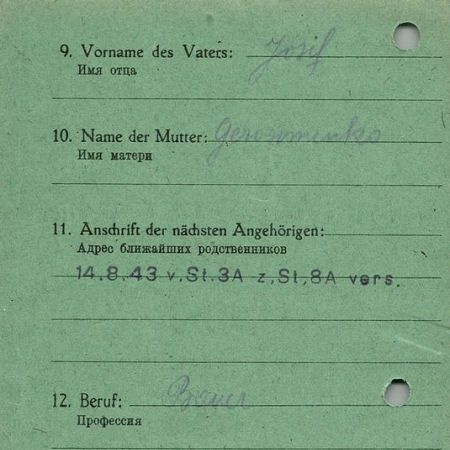 9. Vorname des Vaters: Josif
Имя отца
10. Name der Mutter:
Имя матери
11. Anschrift der nächsten Angehörigen:
Адрес ближайших родственников
14.8.43 v.St.3A z.St.8A vers.
12. Beruf: Bauer
Профессия